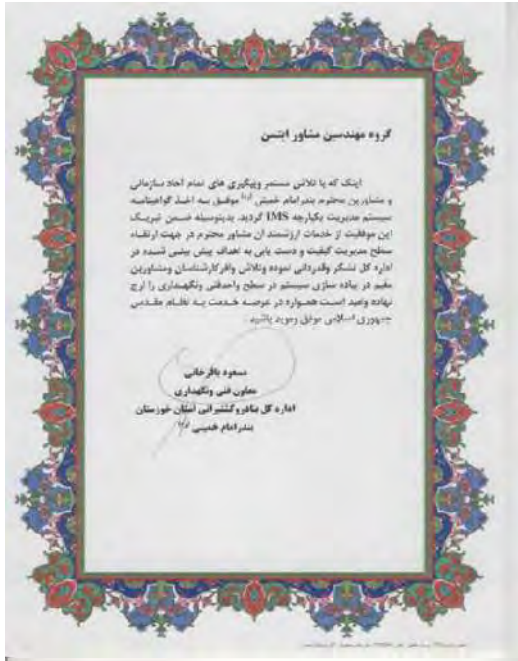 گروه مهندسین مشاور ایتسن
اینک که با تلاش مستمر وپیگیری های تمام آحاد سازمانی
و مشاورین محترم بندرامام خمینی (ره) موفق به اخذ گواهینامه
سیستم مدیریت یکپارچه IMS گردید. بدینوسیله ضمن تبریک
این موفقیت از خدمات ارزشمند آن مشاور محترم در جهت ارتقاء
سطح مدیریت کیفیت و دست یابی به اهداف پیش بینی شده در
اداره کل تشکر وقدردانی نموده وتلاش وافر کارشناسان ومشاورین
مقیم در پیاده سازی سیستم در سطح واحدفنی ونگهداری را ارج
نهاده وامید است همواره در عرصه خدمت به نظام مقدس
جمهوری اسلامی موفق وموید باشید.
مسعود باقرخانی
معاون فنی ونگهداری
اداره کل بنادروکشتیرانی استان خوزستان
بندرامام خمینی